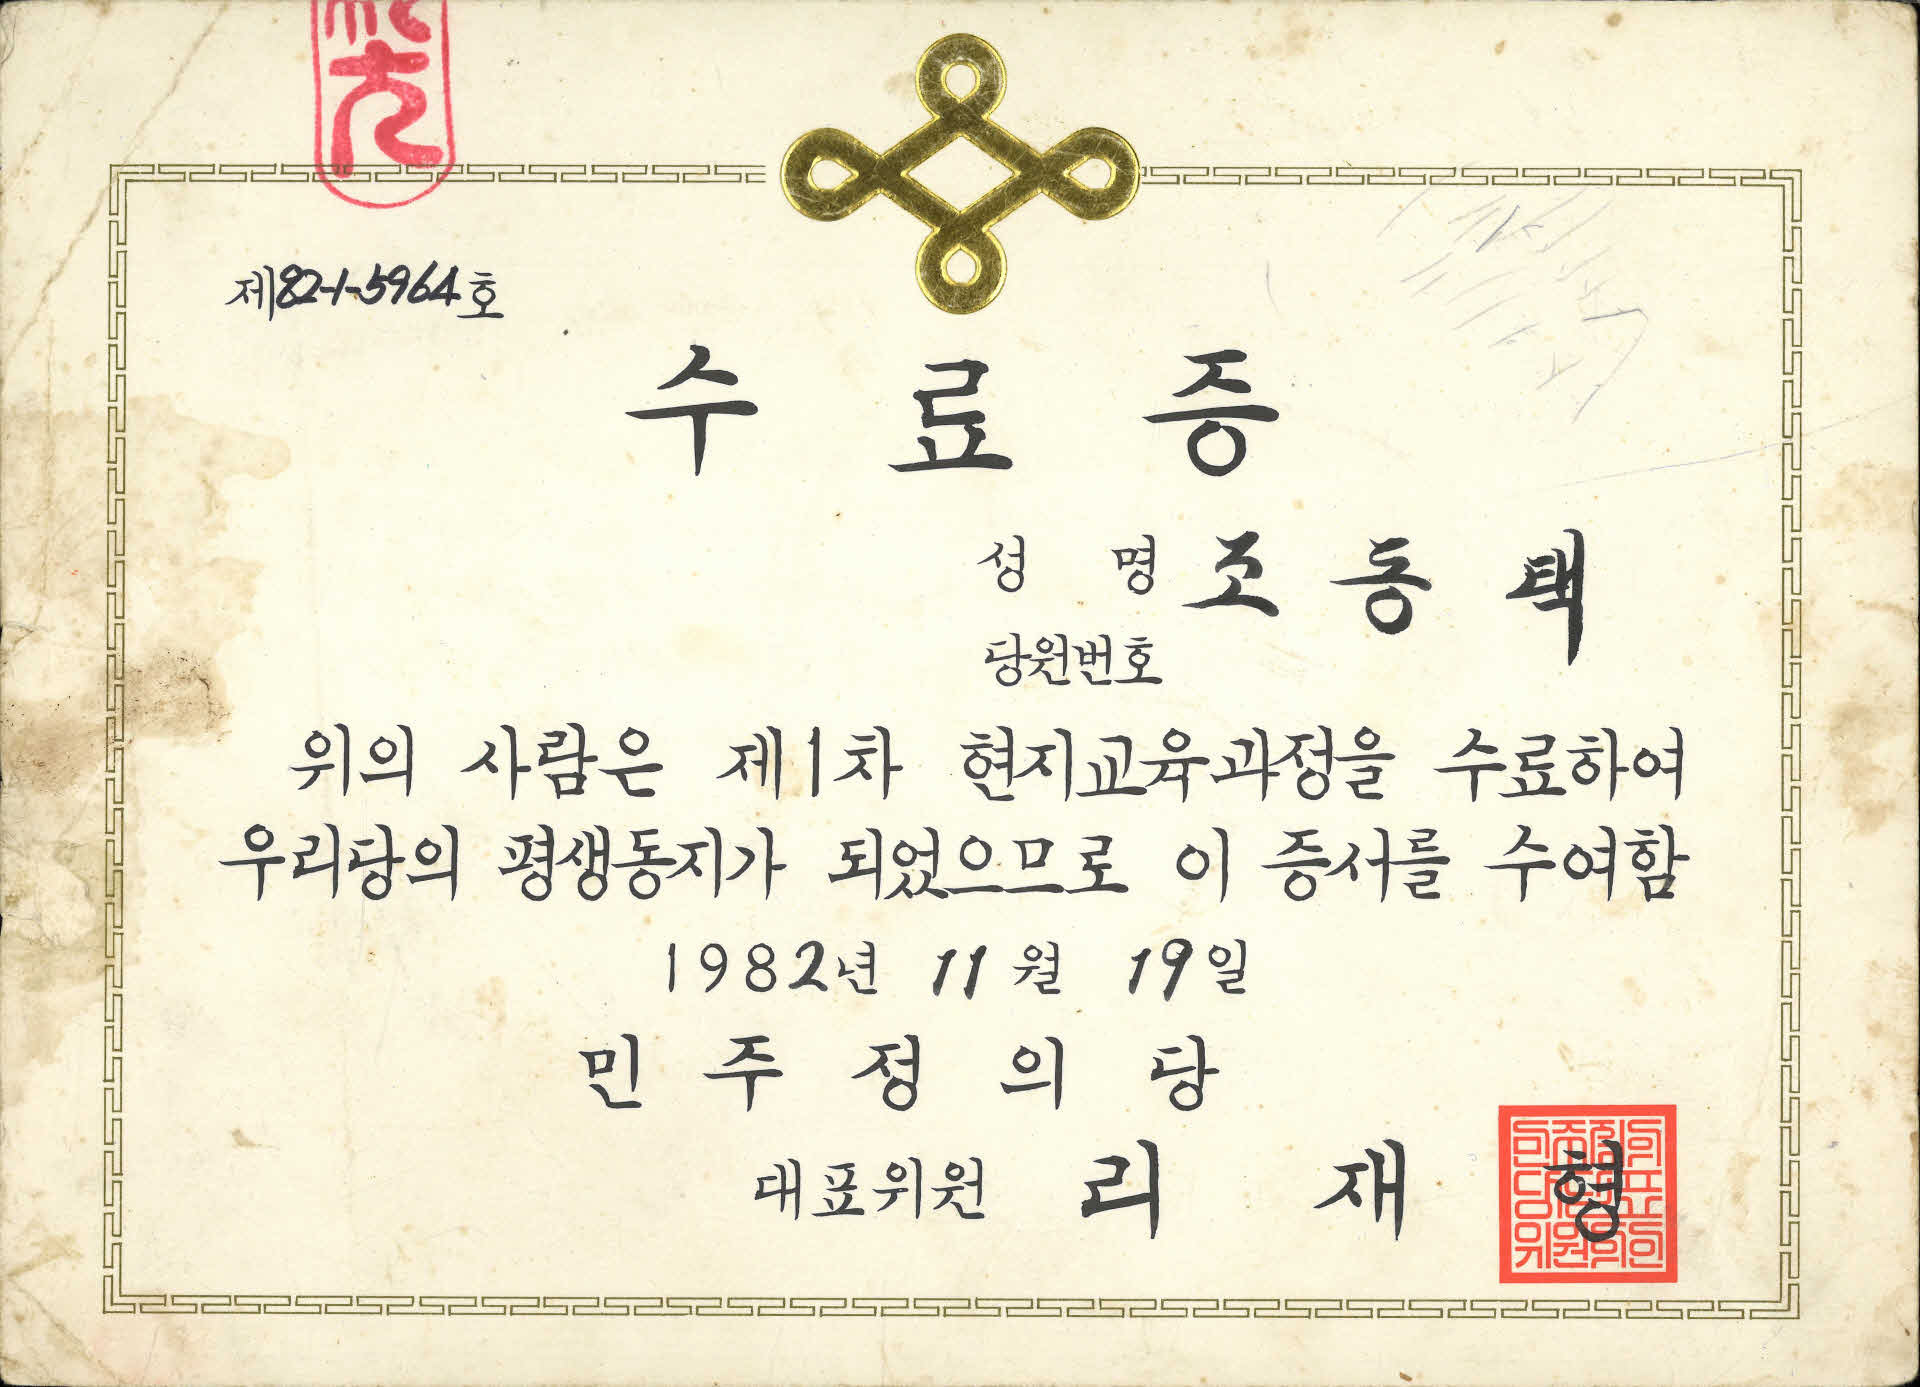 제82-1-5964호
수료증
성명 조동택
당원번호
위의 사람은 제1차 현지교육과정을 수료하여
우리당의 평생동지가 되었으므로 이 증서를 수여함
1982년 11월 19일
민주정의당
대표위원 리재형